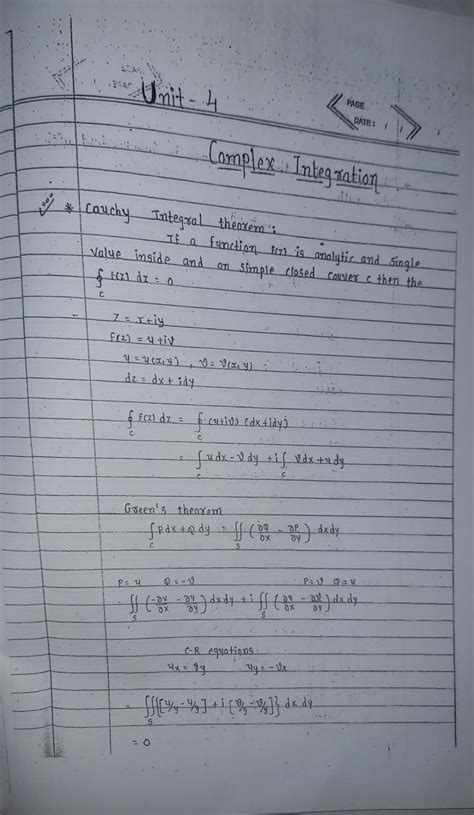 Unit - 4
PAGE
DATE: / /
Complex Integration
* Cauchy Integral theorem:
If a function f(z) is analytic and single
value inside and on simple closed conver c then the
∮c f(z) dz = 0
- z = x+iy
f(z) = u+iv
u = u(x,y) , v = v(x,y)
dz = dx + idy
∮c f(z) dz = ∮c (u+iv) (dx+idy)
= ∫c udx - vdy + i∫c vdx + udy
Green's theorem
∫c pdx + Q dy = ∬s (∂Q/∂x - ∂P/∂y) dxdy
P = u Q = -v P = v Q = u
∬s (-∂v/∂x - ∂u/∂y) dxdy + i ∬s (∂u/∂x - ∂v/∂y) dxdy
C-R equations.
ux = vy uy = -vx
= 0